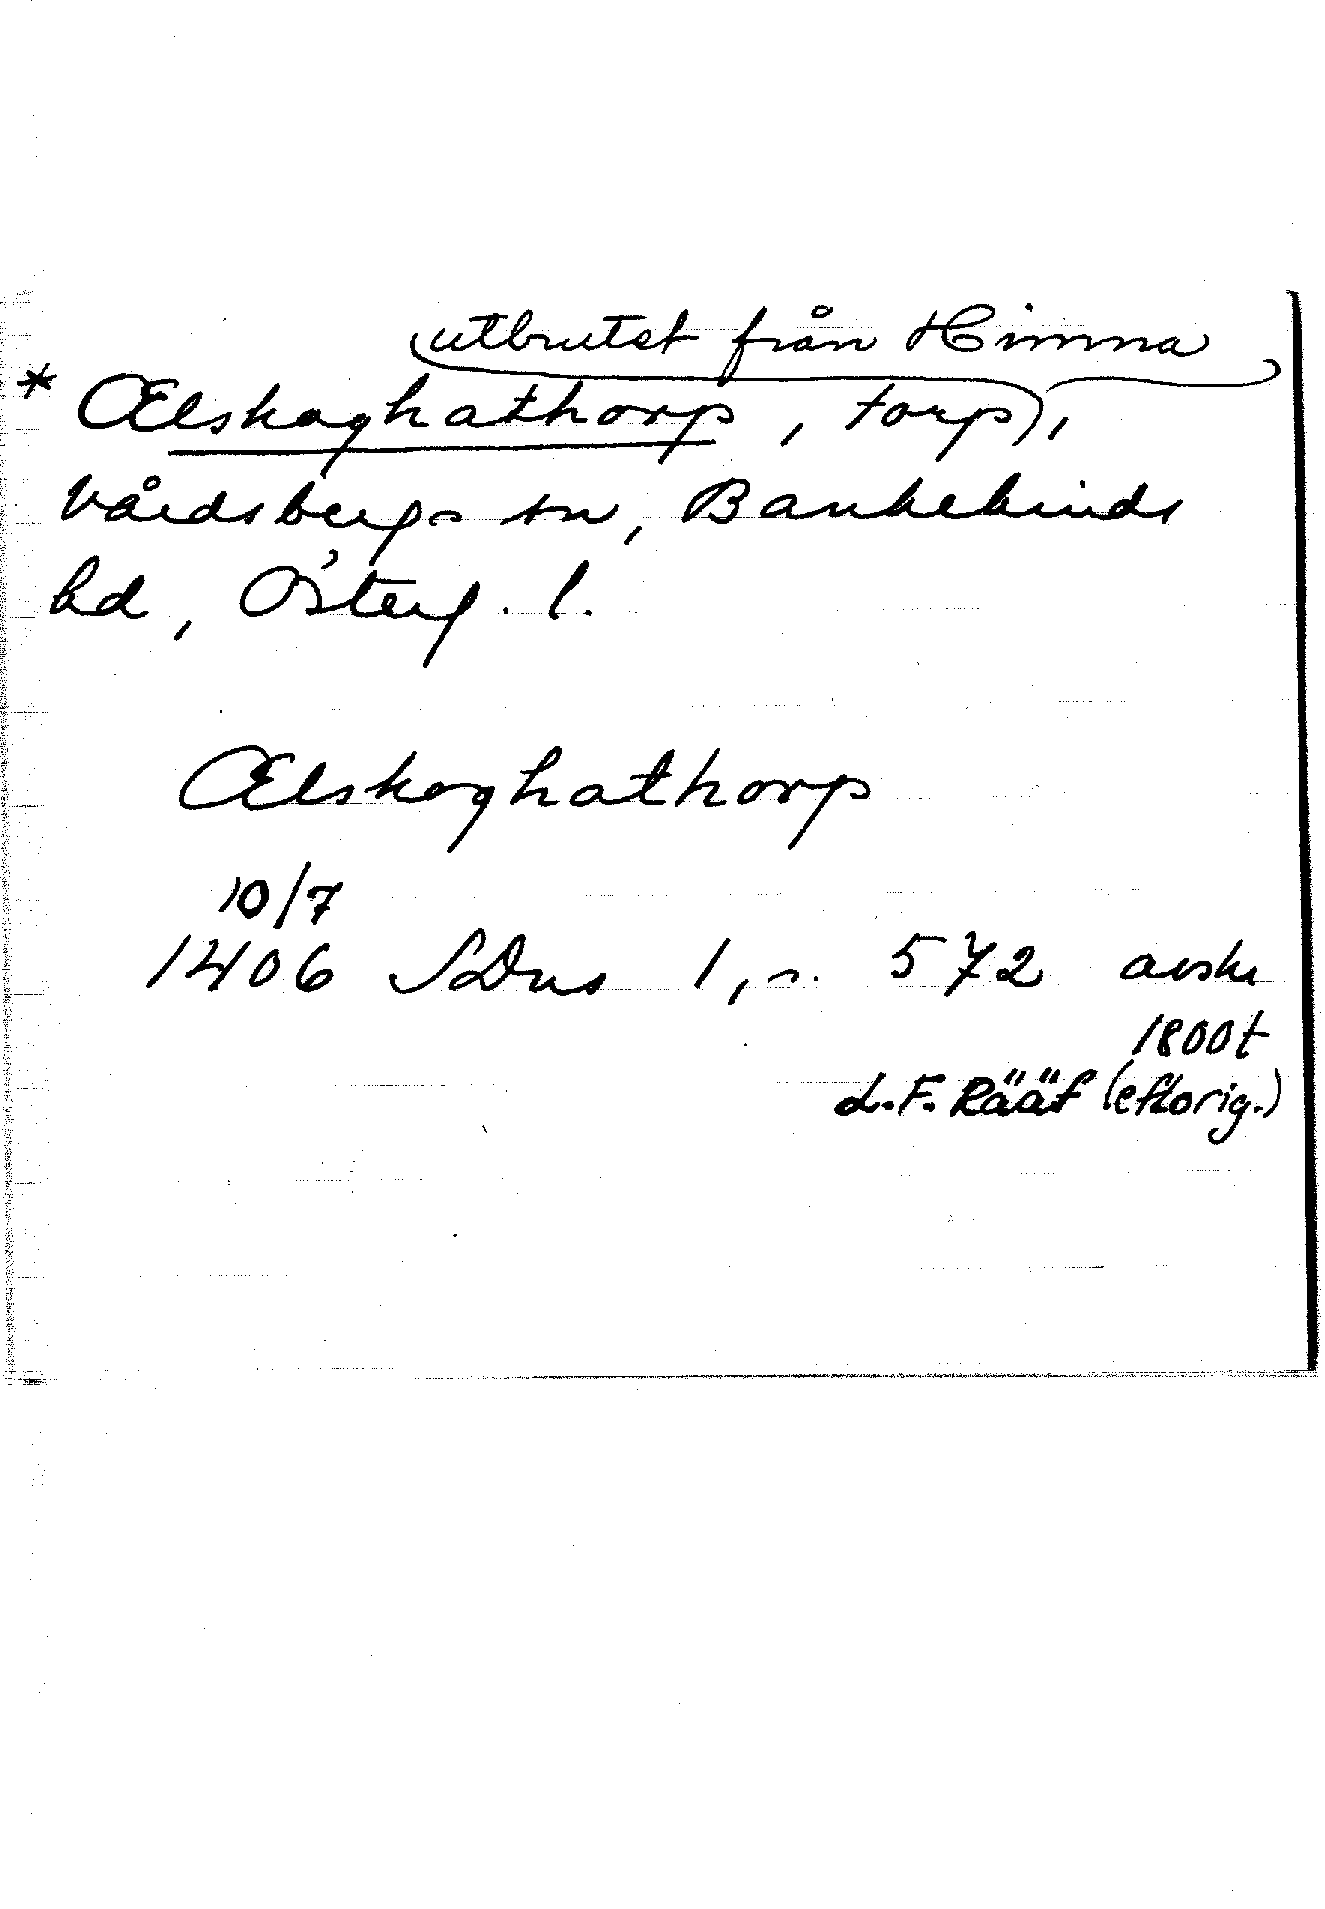 utbrutet från Himna
* Ælskoghathorp, torp),
Vårdsbergs sn, Bankekinds
hd, Österg. l.
Ælskoghathorp
10/7
1406 SDns 1, s. 572 avskr
1800t
L.F. Rääf (eft orig.)